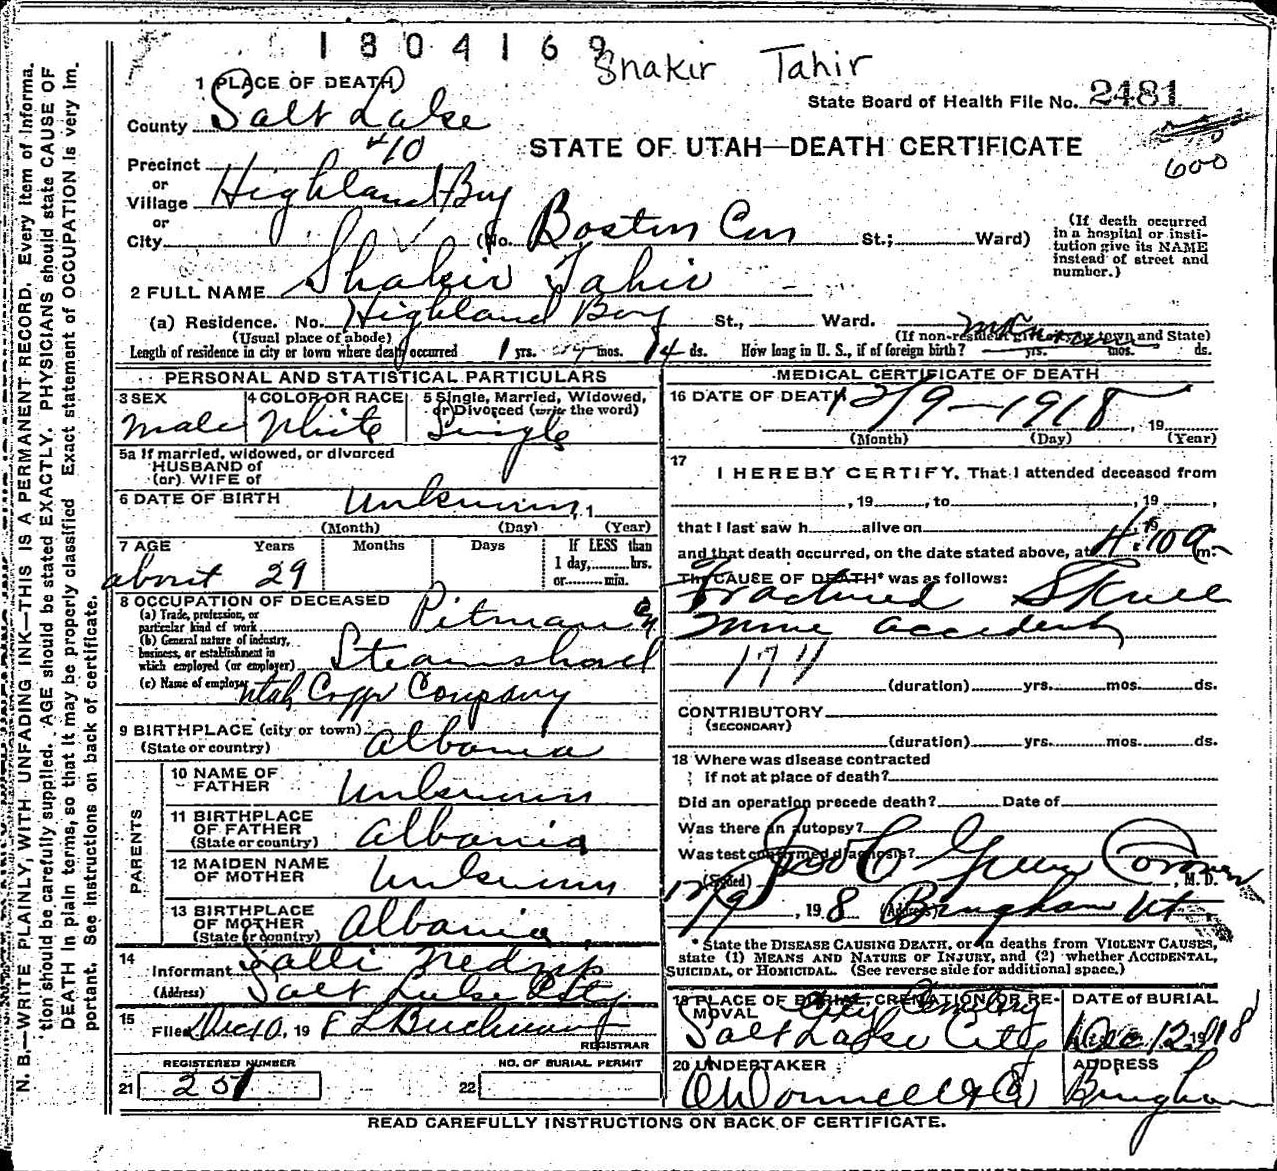 1804169
Shakir Tahir
1 PLACE OF DEATH
State Board of Health File No. 2481
County Salt Lake
STATE OF UTAH—DEATH CERTIFICATE
600
Precinct #10
or
Village Highland Boy
or
City (No. Boston Con St.; Ward)
(If death occurred in a hospital or institution give its NAME instead of street and number.)
2 FULL NAME Shakir Tahir
(a) Residence. No. Highland Boy St., Ward.
(Usual place of abode) (If non-resident give city or town and State)
Length of residence in city or town where death occurred 1 yrs. mos. 14 ds. How long in U. S., if of foreign birth? yrs. mos. ds.
PERSONAL AND STATISTICAL PARTICULARS
3 SEX Male
4 COLOR OR RACE White
5 Single, Married, Widowed, or Divorced (write the word) Single
5a If married, widowed, or divorced
HUSBAND of
(or) WIFE of
6 DATE OF BIRTH Unknown, 1
(Month) (Day) (Year)
7 AGE Years Months Days If LESS than 1 day, hrs. or min.
about 29
8 OCCUPATION OF DECEASED
(a) Trade, profession, or particular kind of work Pitman on
(b) General nature of industry, business, or establishment in which employed (or employer) Steamshovel
(c) Name of employer Utah Copper Company
9 BIRTHPLACE (city or town)
(State or country) Albania
PARENTS
10 NAME OF FATHER Unknown
11 BIRTHPLACE OF FATHER (State or country) Albania
12 MAIDEN NAME OF MOTHER Unknown
13 BIRTHPLACE OF MOTHER (State or country) Albania
14 Informant Salli Nedzip
(Address) Salt Lake City
15 Filed Dec 10, 19 F L Buchman
REGISTRAR
REGISTERED NUMBER NO. OF BURIAL PERMIT
21 251 22
MEDICAL CERTIFICATE OF DEATH
16 DATE OF DEATH 12/9-1918, 19
(Month) (Day) (Year)
17 I HEREBY CERTIFY, That I attended deceased from
, 19 , to , 19 ,
that I last saw h alive on , 19
and that death occurred, on the date stated above, at 4:10 a m.
The CAUSE OF DEATH* was as follows:
Fractured Skull
Mine accident
177
(duration) yrs. mos. ds.
CONTRIBUTORY
(SECONDARY)
(duration) yrs. mos. ds.
18 Where was disease contracted
if not at place of death?
Did an operation precede death? Date of
Was there an autopsy?
Was test confirmed diagnosis?
(Signed) Jno C Green Coroner, M. D.
12/9, 19 8 (Address) Bingham Ut
*State the DISEASE CAUSING DEATH, or in deaths from VIOLENT CAUSES, state (1) MEANS AND NATURE OF INJURY, and (2) whether ACCIDENTAL, SUICIDAL, or HOMICIDAL. (See reverse side for additional space.)
19 PLACE OF BURIAL, CREMATION OR REMOVAL City Cemetery
Salt Lake City
DATE of BURIAL
Dec 12, 1918
20 UNDERTAKER
O'Donnell & Co
ADDRESS
Bingham
READ CAREFULLY INSTRUCTIONS ON BACK OF CERTIFICATE.
N. B.—WRITE PLAINLY, WITH UNFADING INK—THIS IS A PERMANENT RECORD. Every item of informa-
tion should be carefully supplied. AGE should be stated EXACTLY. PHYSICIANS should state CAUSE OF
DEATH in plain terms, so that it may be properly classified Exact statement of OCCUPATION is very im-
portant. See instructions on back of certificate.